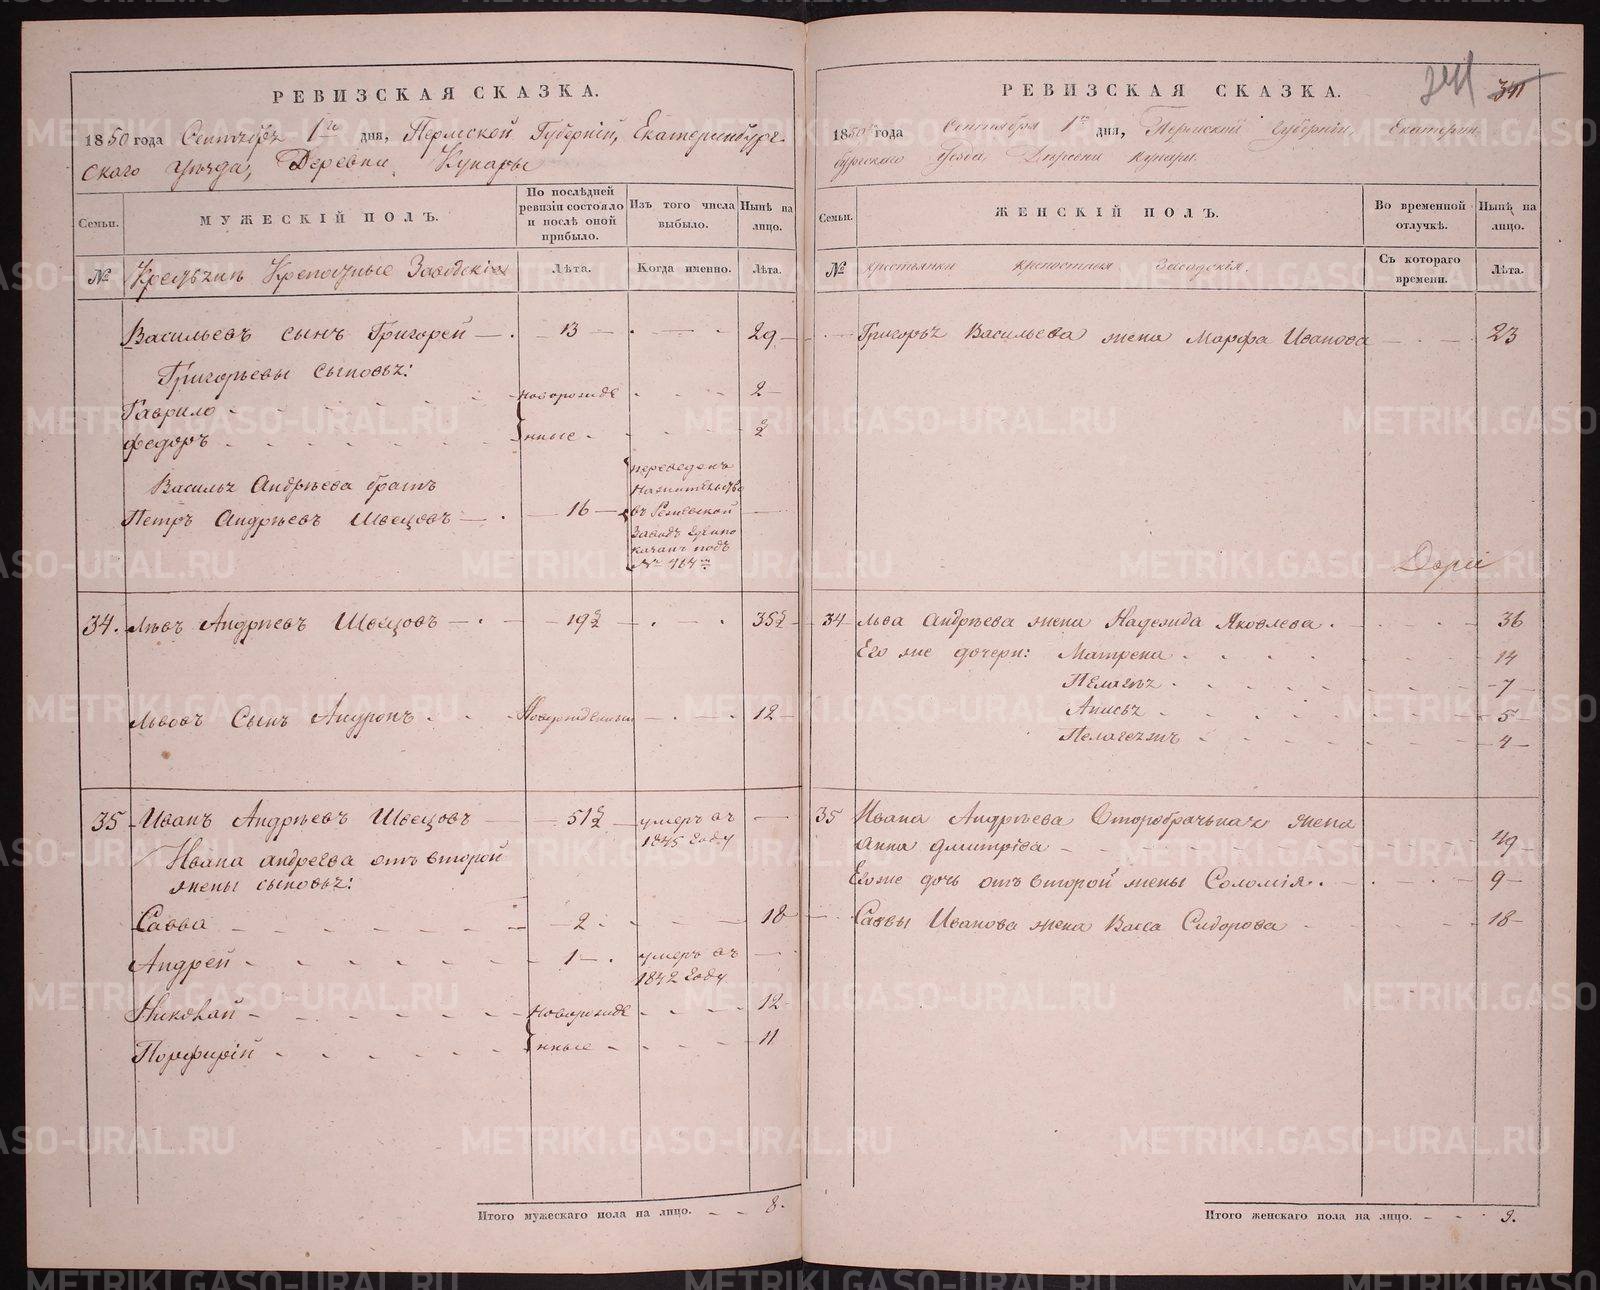 РЕВИЗСКАЯ СКАЗКА.
1850 года Сентября 1го дня, Пермской Губернии, Екатеринбург-
ского Уезда, Деревни Кунары
Семьи.
МУЖЕСКІЙ ПОЛЪ.
По послѣдней ревизіи состояло и послѣ оной прибыло.
Изъ того числа выбыло.
Нынѣ на лицо.
№ Крестьяне Крепостные Заводскія
Лѣта.
Когда именно.
Лѣта.
Васильевъ сынъ Григорей 13 29
Григорьевы сыновья:
Гаврило новорожде 2
Федоръ нные 2
Василья Андрѣева братъ
Петръ Андрѣевъ Швецовъ 16
переведенъ
на жительство
въ Режевской
Заводъ
показанъ подъ
№ 764
34. Левъ Андрѣевъ Швецовъ 19½ 35½
Львовъ Сынъ Андронъ Новорожденный 12
35 Иванъ Андрѣевъ Швецовъ 51½ умеръ въ
1845 году
Ивана Андреева отъ второй
жены сыновья:
Савва 2 18
Андрей 1 умеръ въ
1842 году
Николай новорожде 12
Порфирій нные 11
Итого мужескаго пола на лицо. 8.
РЕВИЗСКАЯ СКАЗКА.
241 341
1850 года Сентября 1го дня, Пермской Губернии, Екатерин
бургскаго Уезда, Деревни Кунары.
Семьи.
ЖЕНСКІЙ ПОЛЪ.
Во временной отлучкѣ.
Нынѣ на лицо.
№ Крестьянки крепостныя Заводскія.
Съ котораго времени.
Лѣта.
Григорья Васильева жена Марфа Иванова 23
34 Льва Андрѣева жена Надежида Яковлева. 36
Его же дочери: Матрена 14
7
Анисья 5
4
35 Ивана Андрѣева Второбрачьная жена
Анна Дмитріева 49
Его же дочь отъ второй жены Соломія. 9
Саввы Иванова жена Васса Сидорова 18
Итого женскаго пола на лицо. 9.
METRIKI.GASO-URAL.RU